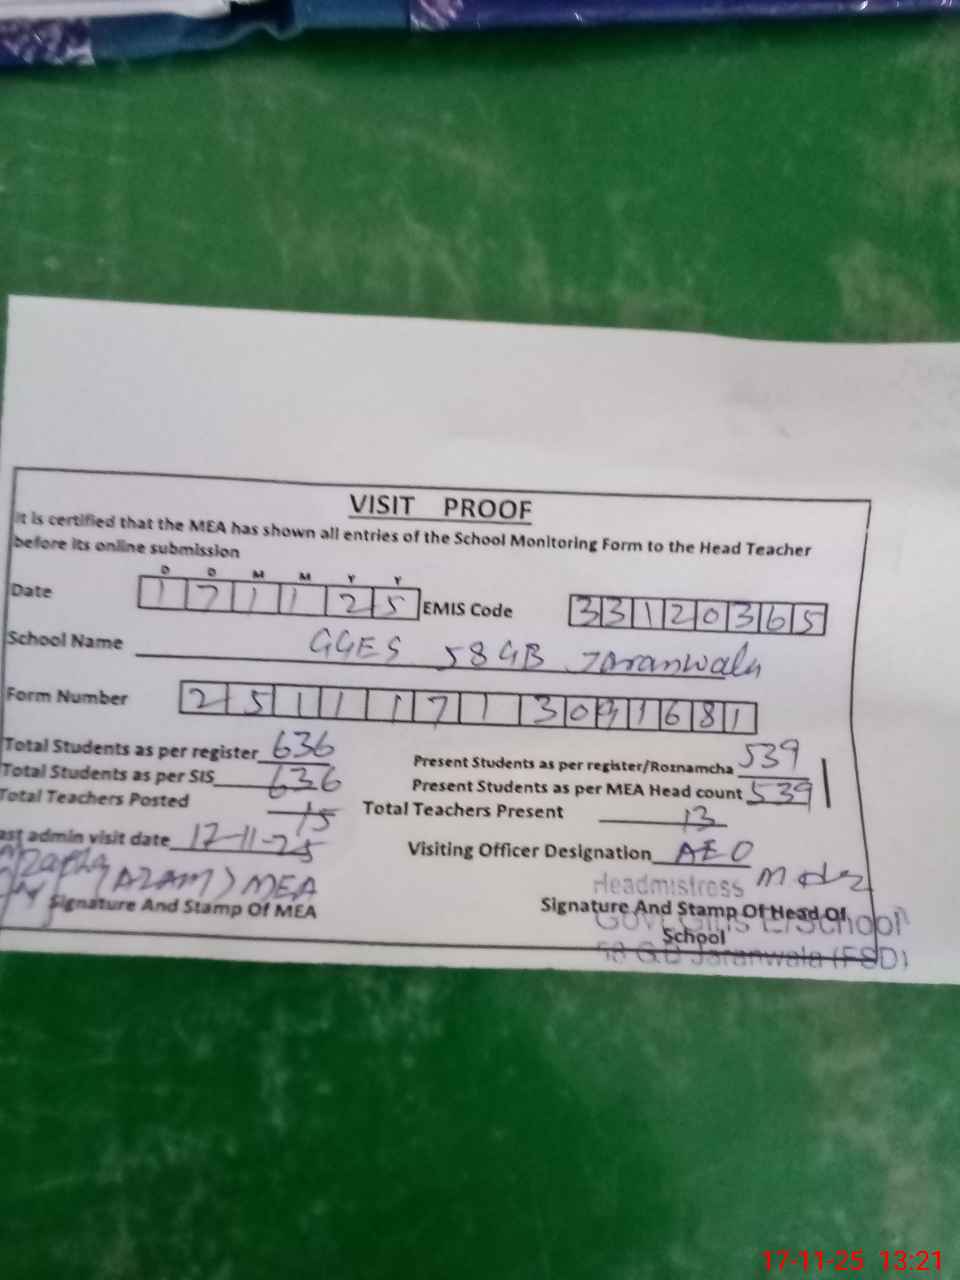 VISIT PROOF
It is certified that the MEA has shown all entries of the School Monitoring Form to the Head Teacher
before its online submission
D D M M Y Y
Date 1 7 1 1 2 5 EMIS Code 3 3 1 2 0 3 6 5
School Name GGES 58 GB Jaranwala
Form Number 2 5 1 1 1 7 1 3 0 9 1 6 8 1
Total Students as per register 636 Present Students as per register/Roznamcha 539
Total Students as per SIS 636 Present Students as per MEA Head count 539
Total Teachers Posted 15 Total Teachers Present 13
ast admin visit date 17-11-25 Visiting Officer Designation AEO
(AZAM) MEA Headmistress
Signature And Stamp Of MEA Signature And Stamp Of Head Of
School
Govt Girls E/School
58 G.B Jaranwala (FSD)
17-11-25 13:21